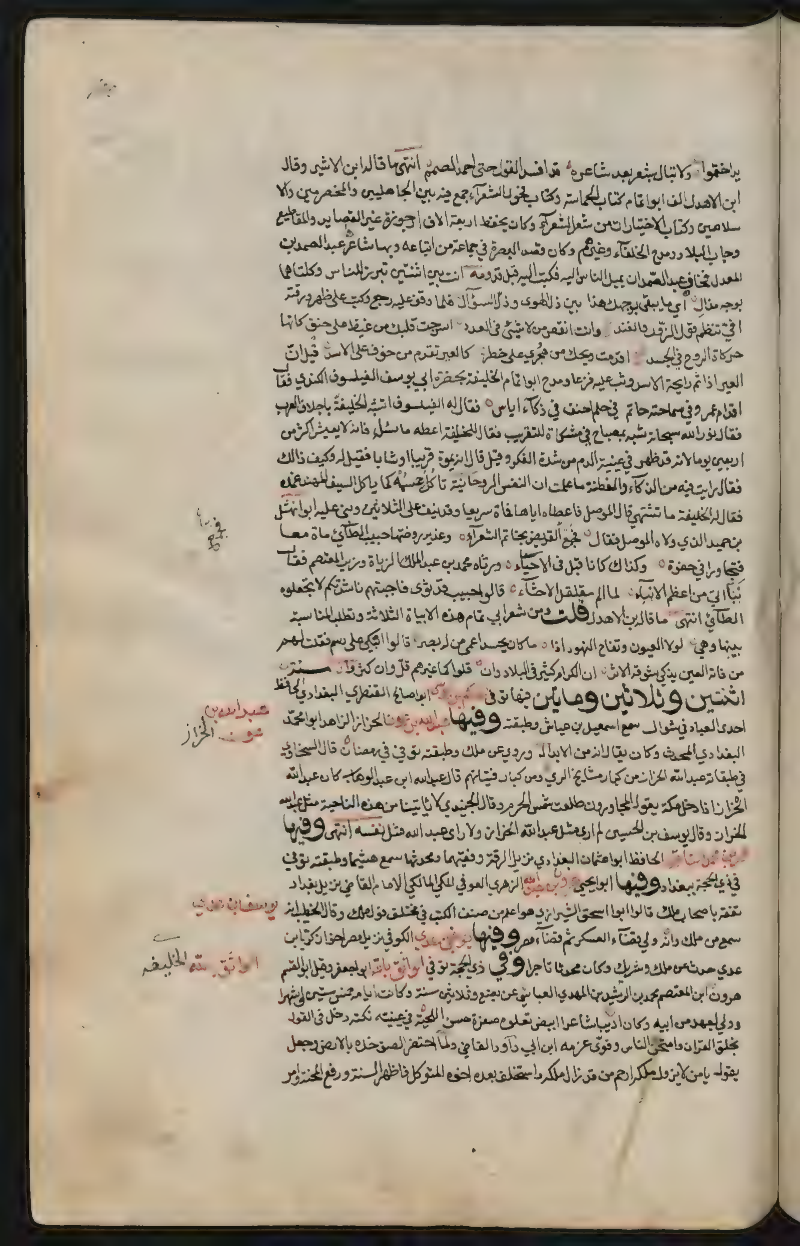 ولا تبال بشعر بعد شاعره قد افسد القول حتى احمد الصمم انتهى ما قاله ابن الاثير وقال
ابن الاهدل الف ابو تمام كتاب الحماسة وكتاب فحول الشعرآء جمع فيه بين الجاهليين والمخضرمين والا
سلاميين وكتاب الاختيارات من شعر الشعرآء وكان يحفظ اربعة الاف ارجوزة غير القصايد والمقاطيع
وجاب البلاد ومدح الخلفآء وغيرهم وكان قصد البصرة في جماعة من اتباعه وبها شاعر عبد الصمد بن
المعدل فخاف عبد الصمد ان يميل الناس اليه فكتب اليه قبل قدومه انت بين اثنتين تبرز للناس وكلتاهما
بوجه مذال اي ما يبقى بوجهك هذا بين ذل الهوى وذل السؤال فلما وقف عليه رجع وكتب على ظهر ورقته
افيّ تنظم قول الزور والفند وانت انقص من لا شيئ في العدد اسرجت قلبك من غيظ على حنق كانها
حركاة الروح في الجسد اقدمت ويحك من هجوي على خطر كالعير يقدم من خوف على الاسد قيل انّ
العير اذا شم رايحة الاسد وثب عليه فزعا ومدح ابو تمام الخليفة بحضرة ابي يوسف الفيلسوف الكندي فقال
اقدام عمرو في سماحة حاتم في حلم احنف في ذكآء اياس فقال له الفيلسوف اتشبه الخليفة باجلاف العرب
فقال نور الله سبحانه شبه بمصباح في مشكاة للتقريب فقال للخليفة اعطه ما سئل فانه لا يعيش اكثر من
اربعين يوما لانه قد ظهر في عينيه الدم من شدة الفكر وقيل قال انه يموت قريبا او شابا فقيل له وكيف ذلك
فقال رايت فيه من الذكآء والفطنة ما علمت ان النفس الروحانية تاكل جسمه كما ياكل السيف المهند غمده
فقال له الخليفة ما تشتهي قال الموصل فاعطاه اياها فمات سريعا وقد نيف على الثلاثين وبنى عليه ابو نهشل
بن حميد الذي ولاه الموصل فقال فجع القريض بخاتم الشعرآء وغدير روضتها حبيب الطآئي ماتا معا
فتجاورا في حفرة وكذاك كانا قبل في الاحيآء ورثاه محمد بن عبد الملك الزيات وزير المعتصم فقال
نبأ اتى من اعظم الانبآء لما الم مقلقل الاحشآء قالوا حبيب قد ثوى فاجبتهم ناشدتكم لا تجعلوه
الطآئي انتهى ما قاله بن الاهدل قلت ومن شعر ابي تمام هذه الابيات الثلاثة
بينها وهي لولا العيون وتفاح النهود اذا ما كان يحسد اعمى من له بصر قالوا اتبكي على رسم فقلت لهم
من فاته العين يذكي شوقه الاثر ان الكرام كثير في البلاد وان قلوا كما غيرهم قلّ وان كثروا سنة
اثنتين وثلاثين ومايتين فيها توفي الحكم بن موسى ابو صالح القنطري البغدادي الحافظ
احدى العباد في شوال سمع اسمعيل بن عياش وطبقته وفيها عبد الله بن عون الخزاز الزاهد ابو محمد
البغدادي المحدث وكان يقال انه من الابدال وروى عن ملك وطبقته توفي في رمضان قال السخاوي
في طبقاته عبد الله الخزاز من كبار مشايخ الري ومن كبار فتيانهم قال عبد الله ابن عبد الوهاب كان عبد الله
الخزاز اذا دخل مكة يقول المجاورون طلعت شمس الحرم وقال الجنيدي لا ياتينا من هذه الناحية مثل عبد الله
الخزاز وقال يوسف بن الحسين لم ار مثل عبد الله الخزاز ولا راى عبد الله مثل نفسه انتهى وفيها
عمرو بن محمد الناقد الحافظ ابو عثمان البغدادي نزيل الرقة وفقيهها ومحدثها سمع هشيما وطبقته توفي
في ذي الحجة ببغداد وفيها ابو يحيى هرون بن عبد الله الزهري العوفي المكي المالكي الامام القاضي نزيل بغداد
تفقه باصحاب ملك قال ابو اسحق الشيرازي هو اعلم من صنف الكتب في مختلف قول ملك وقال الخطيب انه
سمع من ملك وانه ولي قضآء العسكر ثم قضآء مصر وفيها يوسف بن عدي الكوفي نزيل مصر اخو زكريا بن
عدي حدث عن ملك وشريك وكان محدثا تاجرا وفي ذي الحجة توفي الواثق بالله ابو جعفر وقيل ابو القسم
هرون ابن المعتصم محمد بن الرشيد بن المهدي العباسي عن بضع وثلاثين سنة وكانت ايامه خمس سنين اشهرا
وولي بعهد من ابيه وكان اديبا شاعرا ابيض تعلوه صفرة حسن اللحية في عينيه نكتة دخل في القول
بخلق القران وامتحن الناس وقوى عزمه ابن ابي داود القاضي ولما احتضر الصق خده بالارض وجعل
يقول يا من لا يزول ملكه ارحم من قد زال ملكه واستخلف بعده اخوه المتوكل فاظهر السنة ورفع المحنة وامر
عبد الله بن
عون الخزاز
يوسف بن عدي
الواثق بالله الخليفه